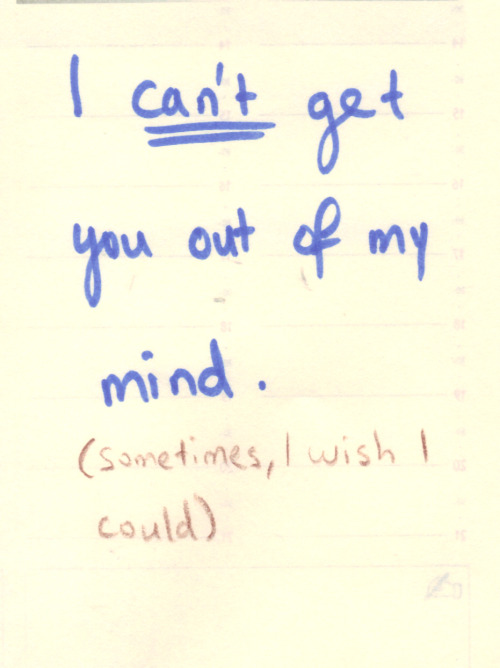 I can't get
you out of my
mind.
(sometimes, I wish I
could)